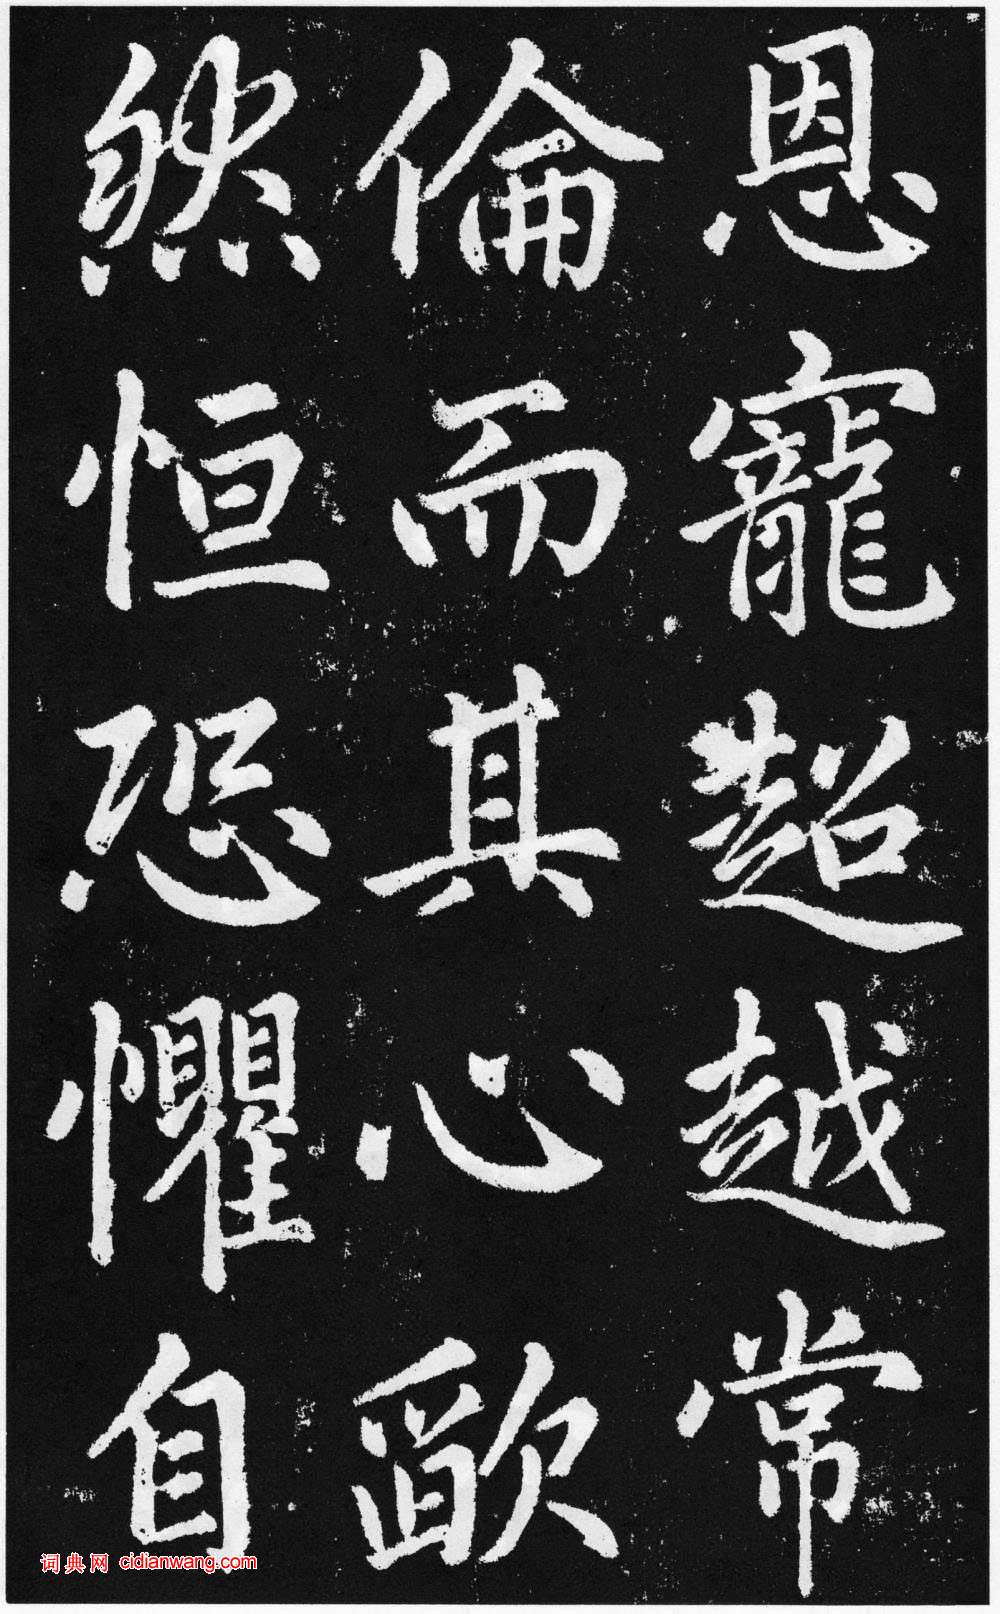 恩寵超越常
倫而其心歐
然恒恐懼自
词典网 cidianwang.com